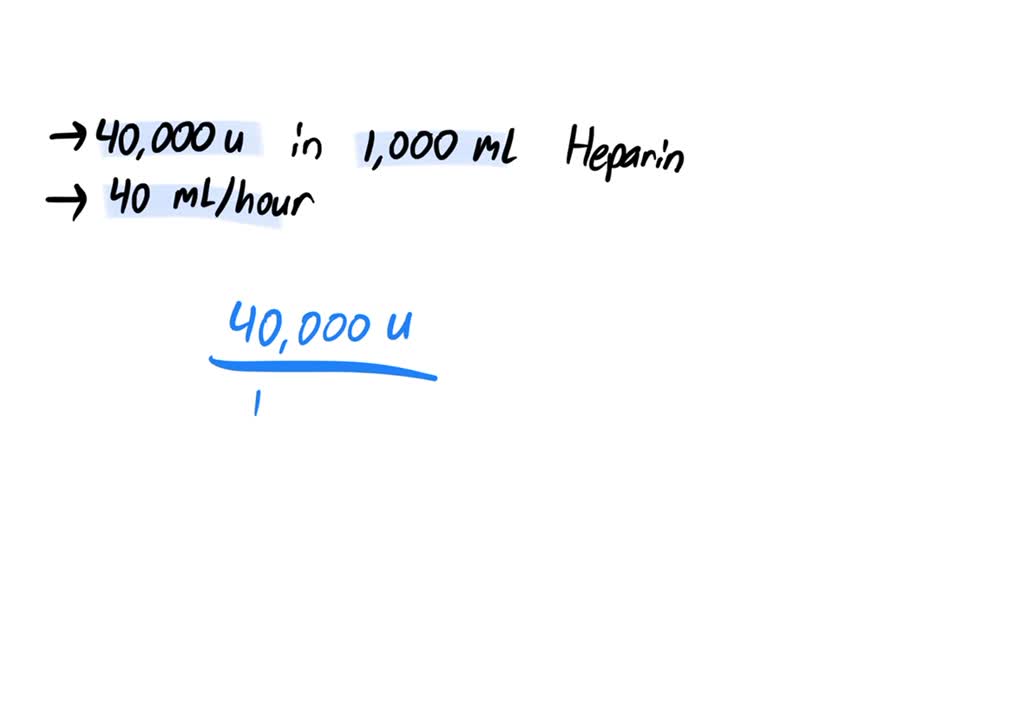 → 40,000 u in 1,000 mL Heparin
→ 40 mL/hour
40,000 u
1